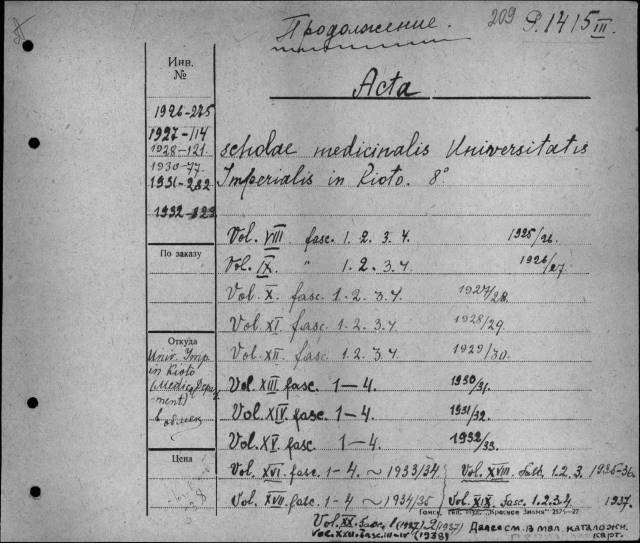 Продолжение. 209 P.1415 III
Инв.
№
Acta
1926-275
1927-114
1928-121.
1930-77.
1931-282
scholae medicinalis Universitatis
Imperialis in Kioto. 8°
Vol. VIII fasc. 1. 2. 3. 4. 1925/26.
По заказу
Vol. IX " 1. 2. 3. 4 1926/27.
Vol. X. fasc. 1. 2. 3. 4. 1927/28.
Vol. XI fasc. 1. 2. 3. 4. 1928/29.
Откуда
Univ. Imp.
in Kioto
(Medic. Depart
-ment)
в обмен
Vol. XII fasc. 1. 2. 3. 4 1929/30.
Vol. XIII fasc. 1—4. 1930/31.
Vol. XIV fasc. 1—4. 1931/32.
Vol. XV fasc. 1—4. 1932/33.
Цена
Vol. XVI. fasc. 1-4. ~ 1933/34 Vol. XVIII. fasc. 1. 2. 3. 1935-36.
Vol. XVII. fasc. 1-4 ~ 1934/35 Vol. XIX. fasc. 1. 2. 3. 4 1937.
Томск. "Красное Знамя" 2575—27
Vol. XX. fasc. 1 (1937) 2 (1937) Далее см. в мал. каталожн.
карт.
Vol. XXII. fasc. (1938)